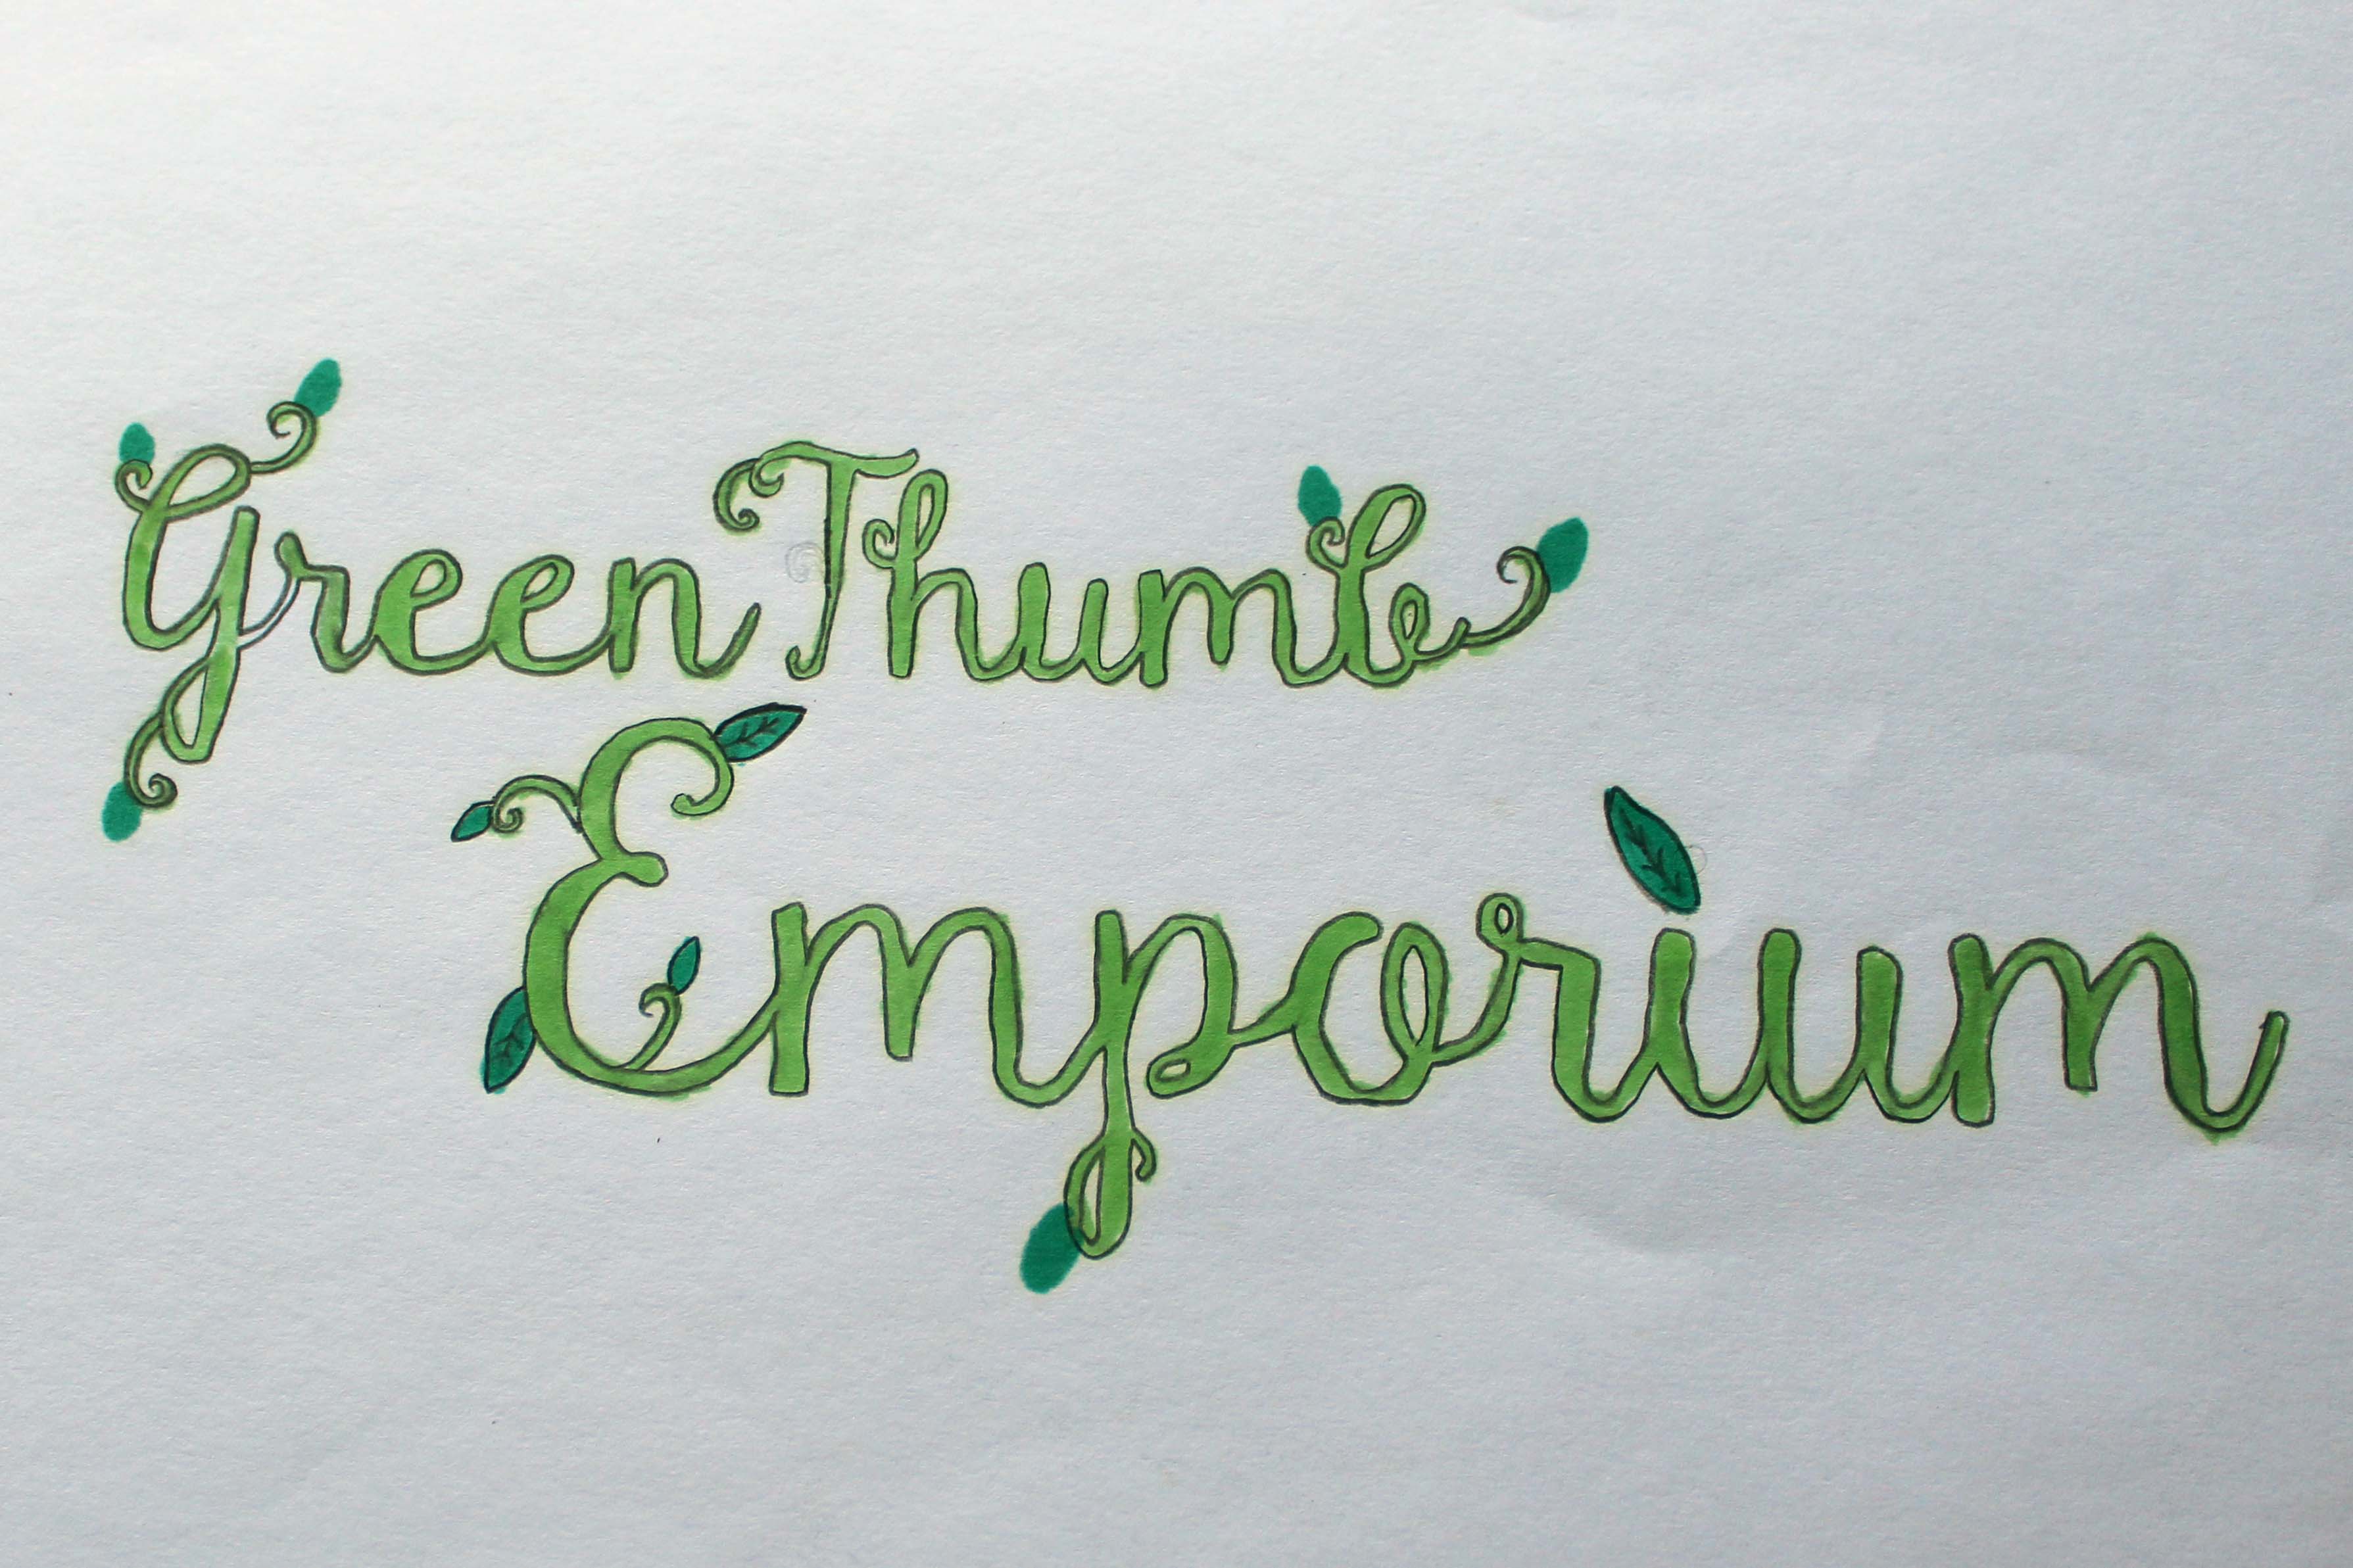 Green Thumb
Emporium